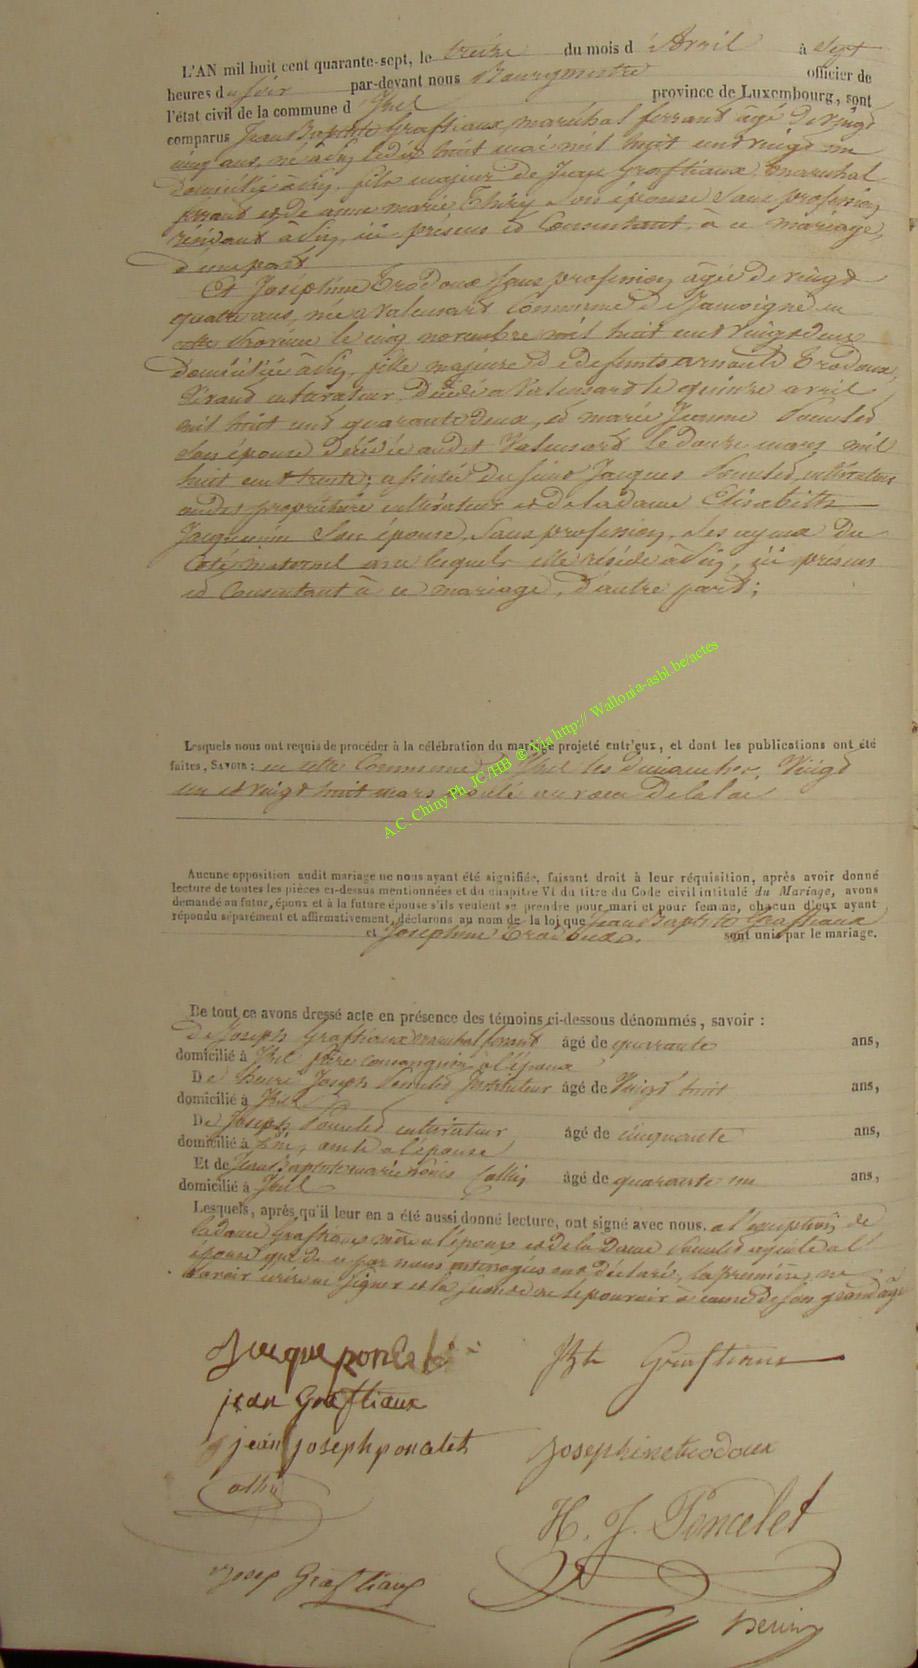 L'AN mil huit cent quarante-sept, le treize du mois d'Avril à Sept
heures du soir par-devant nous Bourgmestre officier de
l'état civil de la commune d'Izel province de Luxembourg, sont
comparus Jean Baptiste Graftiaux, maréchal ferrant âgé de vingt
cinq ans, né à le dix huit mai mil huit cent vingt un
domicilié à fils majeur de Jean Graftiaux, maréchal
ferrant et de anne marie Thiry son épouse sans profession
résidant à ici présens et Consentant à ce mariage,
d'une part
Et Joséphine Trodoux sans profession, âgée de vingt
quatre ans, née a Valensart Commune de Jamoigne en
cette Province le cinq novembre mil huit cent vingt deux
domiciliée à fille majeure de defunts arnould Trodoux,
vivant cultivateur Décédé a Valensart le quinze avril
mil huit cent quarante deux, et marie Jeanne Poncelet
son épouse décédée audit Valensart le douze mars mil
huit cent trente; assistée du sieur Jacques Poncelet, cultivateur
propriétaire cultivateur et de la dame Elisabeth
Jacquemin son épouse, sans profession, ses ayeux du
Coté maternel avec lesquels elle réside à ici presens
et Consentant à ce mariage, d'autre part;
Lesquels nous ont requis de procéder à la célébration du mariage projeté entr'eux, et dont les publications ont été
faites, SAVOIR: en cette Commune d'Izel les dimanches, Vingt
un et vingt huit mars voulu au vœu de la loi
Aucune opposition audit mariage ne nous ayant été signifiée, faisant droit à leur réquisition, après avoir donné
lecture de toutes les pièces ci-dessus mentionnées et du chapitre VI du titre du Code civil intitulé du Mariage, avons
demandé au futur, époux et à la future épouse s'ils veulent se prendre pour mari et pour femme, chacun d'eux ayant
répondu séparément et affirmativement, déclarons au nom de la loi que Jean Baptiste Graftiaux
et Joséphine Trodoux. sont unis par le mariage.
De tout ce avons dressé acte en présence des témoins ci-dessous dénommés, savoir :
De Joseph Graftiaux maréchal ferrant âgé de quarante ans,
domicilié à Izel frère consanguin à l'époux
De Henri Joseph Poncelet Instituteur âgé de Vingt huit ans,
domicilié à Izel
De Joseph Poncelet cultivateur âgé de cinquante ans,
domicilié à oncle a l'épouse
Et de Jean Baptiste marie Collin âgé de quarante un ans,
domicilié à Izel
Lesquels, après qu'il leur en a été aussi donné lecture, ont signé avec nous, a l'exception de
la dame Graftiaux mère a l'époux et de la Dame Poncelet ayeule a l'
épouse que de ce par nous interogées ont déclaré, la première, ne
savoir écrire ni signer et la seconde ne le pouvoir à cause de son grand âge
Jacque poncelet
Jbte Graftiaux
jean Graftiaux
jean joseph poncelet
Josephine trodoux
H. J. Poncelet
Josep Graftiaux
A.C. Chiny Ph JC/HB © Via http:// Wallonia-asbl.be/actes